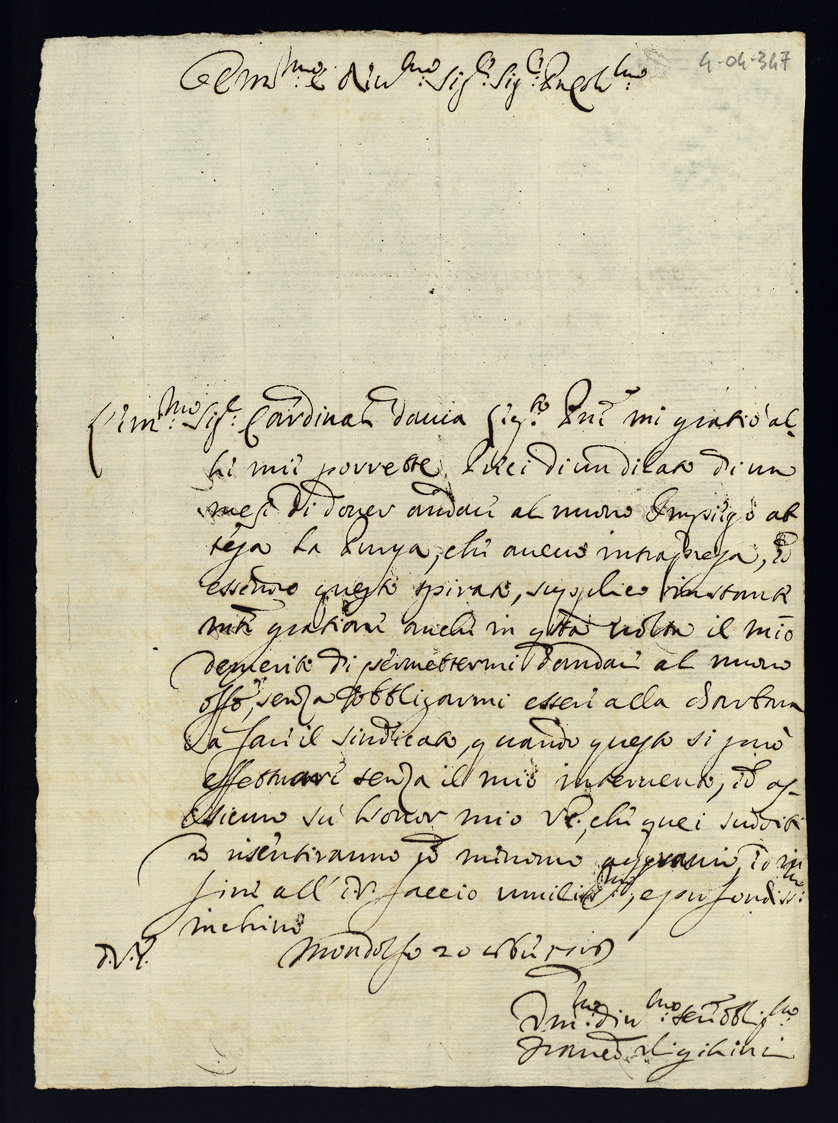 4-04-347
Em.mo e R.mo Sig.r Sig.r P.ron Col.mo
L'Em.mo Sig.r Cardinal Davia Sig.re mi gratiò al
li mii di un dilato di un
mese di dover andare al nuovo Impiego at
tesa la Purga, che avevo intrapresa, ed
essendo questo spirato, supplico instante
m.te gratiare anche in q.sta volta il mio
demerito di permettermi d'andare al nuovo
off.o, senza obbligarmi essere alla
a fare il sindicato, quando questo si può
effettuare senza il mio intervento, ed as-
sicuro su l'honor mio che quei sudditi
n risentiranno minimo aggravio, ed in
fine all' faccio umiliss.mo, e profondiss.mo
inchino
D.V.E.
Mondolfo 20
Um.mo Div.mo Ser.re Obblig.mo